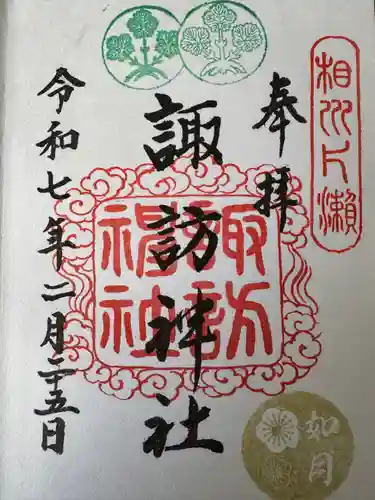 相州片瀬
奉拝
諏訪神社
諏訪
神社
令和七年二月二十五日
如月